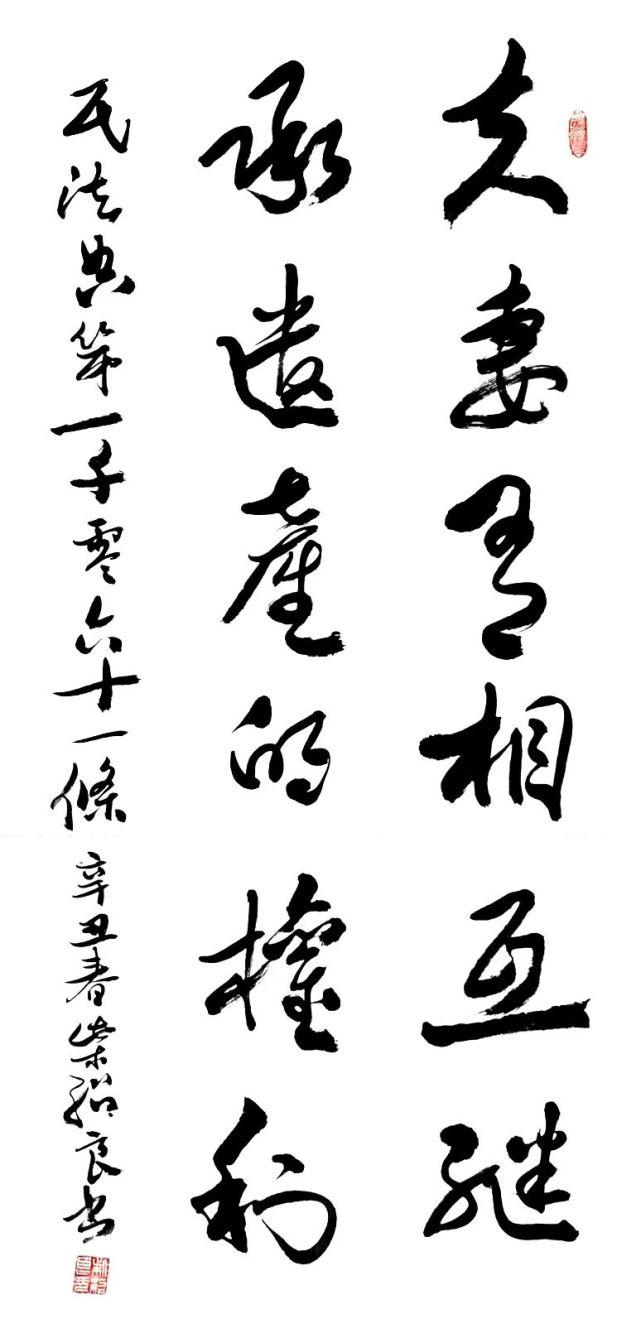 夫妻有相互繼
承遺產的權利
民法典第一千零六十一條
辛丑春柴紹良书